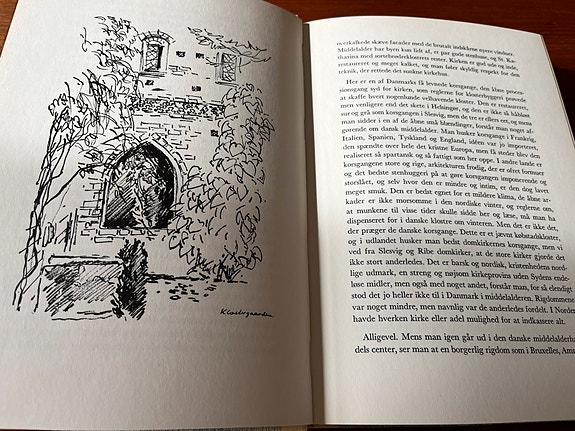 Klostergaarden
overkalkede skæve facader med de brutalt indsklirne nyere vinduer.
Middelalder har byen kun lidt af, et par gode stenhuse, og St. Ka-
tharina med sortebrødreklostrets rester. Kirken er god ude og inde,
restaureret og meget kirken, og man føler skyldig respekt for den
teknik, der rettede det sunkne kirkehus.
Her er en af Danmarks få levende korsgange, den åbne proces-
sionsgang syd for kirken, som reglerne for klosterbyggeri prøvede
at skaffe hvert nogenlunde velhavende kloster. Den er restaureret,
men venligere end det skete i Helsingør, og den er ikke så håbløst
sur og grå som korsgangen i Slesvig, men de tre er ellers ret afgø-
man sidder i en af de åbne små blændinger, forstår man noget af-
gørende om dansk middelalder. Man husker korsgange i Frankrig,
Italien, Spanien, Tyskland og England, idéen var jo importeret,
den spændte over hele det kristne Europa, men få steder blev den
realiseret så spartansk og så fattigt som her oppe. I andre lande er
korsgangene store og rige, arkitekturen frodig, der er ofret formuer
og det bedste stenhuggeri på at gøre korsgangen imponerende og
storslået, og selv hvor den er mindre og intim, er den dog lavet
meget smuk. Den er bedst egnet for et mildere klima, de åbne ar-
kader er ikke morsomme i den nordiske vinter, og reglerne om,
at munkene til visse tider skulle sidde her og læse, må man ha
dispenseret for i danske klostre om vinteren. Men det er ikke det,
der præger de danske korsgange. Dette er et jævnt købstadskloster,
og i udlandet husker man bedst domkirkernes korsgange, men vi
ved fra Slesvig og Ribe domkirker, at de store kirker gjorde det
ikke stort anderledes. Det er barsk og nordisk, kristenhedens nord-
lige udmark, en streng og nøjsom kirkeprovins uden Sydens ende-
løse midler, men også med noget andet, forstår man, for så elendigt
stod det jo heller ikke til i Danmark i middelalderen. Rigdommene
var noget mindre, men navnlig var de anderledes fordelt. I Norden
havde hverken kirke eller adel mulighed for at indkassere alt.
Alligevel. Mens man igen går ud i den danske middelalderha
dels center, ser man at en borgerlig rigdom som i Bruxelles, Ams